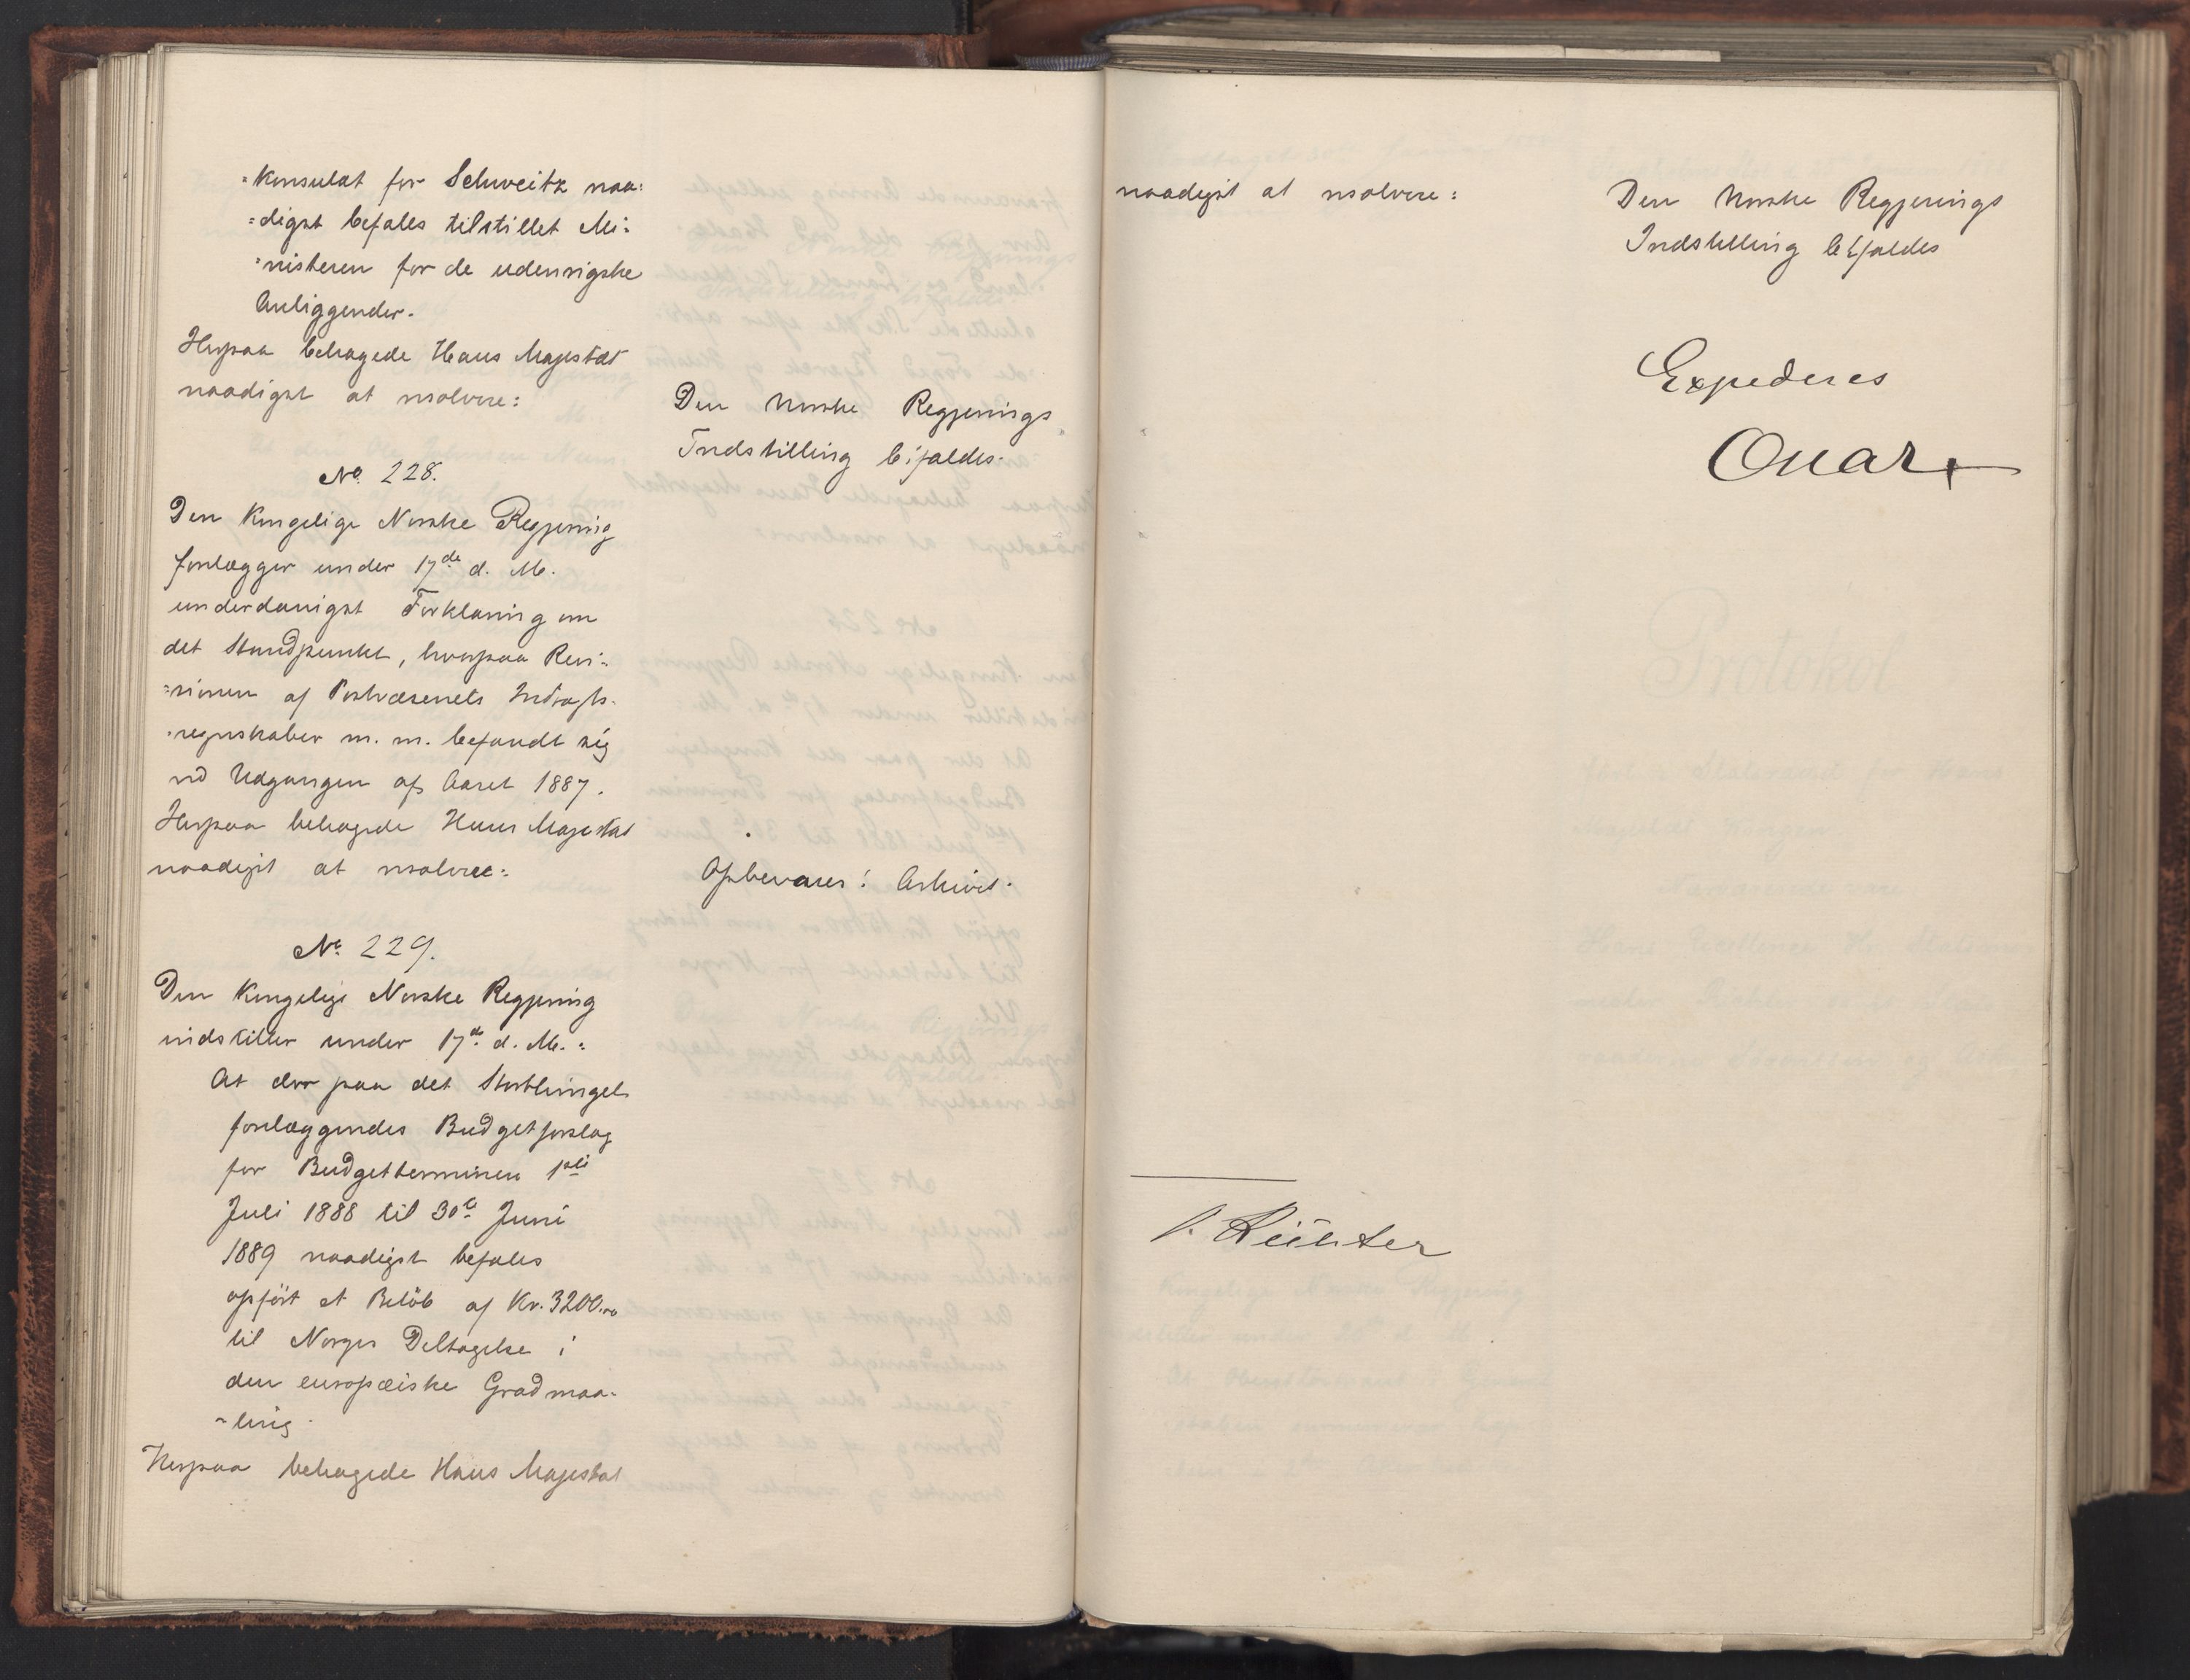 =konsulat for Schweitz naa=
=digst befales tilstillet Mi=
=nisteren for de udenrigske
Anliggender.
Herpaa behagede Hans Majestæt
naadigst at resolvere:
Den Norske Regjerings
Indstilling bifaldes.
No. 228.
Den Kongelige Norske Regjering
forelægger under 17de d. M.
underdanigst Forklaring om
det Standpunkt, hvorpaa Revi=
=sionen af Postvæsenets Indtægts-
-regnskaber m. m. befandt sig
ved Udgangen af Aaret 1887.
Herpaa behagede Hans Majestæt
naadigst at resolvere:
Opbevares i Arkivet.
No. 229.
Den Kongelige Norske Regjering
indstiller under 17de d. M.:
At der paa det Storthinget
forelæggendes Budgetforslag
for Budgetterminen 1ste
Juli 1888 til 30te Juni
1889 naadigst befales
opført et Beløb af Kr. 3200.00
til Norges Deltagelse i
den europæiske Gradmaa-
-ling.
Herpaa behagede Hans Majestæt
naadigst at resolvere:
Den Norske Regjerings
Indstilling bifaldes
Expederes
Oscar
Richter